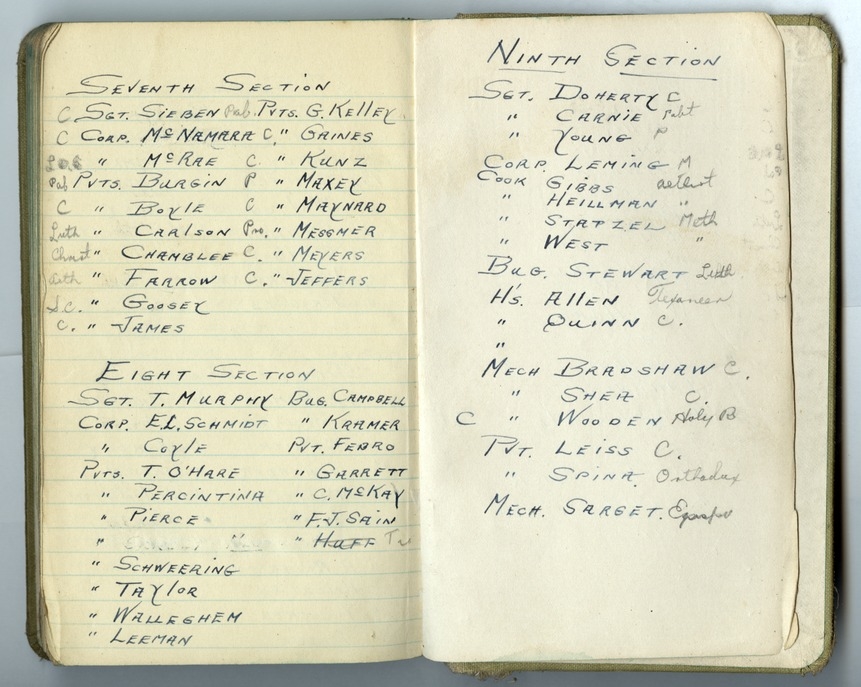 SEVENTH SECTION
C SGT. SIEBEN Pab. PVTS. G. KELLEY
C CORP. McNAMARA C. " GAINES
" McRAE C. " KUNZ
Pab PVTS. BURGIN P " MAXEY
C " BOYLE C " MAYNARD
Luth " CARLSON Pro. " MESSMER
Christ " CHAMBLEE C. " MEYERS
" FARROW C. " JEFFERS
" GOOSEY
C. " JAMES
EIGHT SECTION
SGT. T. MURPHY BUG. CAMPBELL
CORP. E.L. SCHMIDT " KRAMER
" COYLE PVT. FEBRO
PVTS. T. O'HARE " GARRETT
" PERCINTINA " C. McKAY
" PIERCE " F.J. SAIN
" " HUFF
" SCHWEERING
" TAYLOR
" WALLEGHEM
" LEEMAN
NINTH SECTION
SGT. DOHERTY C
" CARNIE
" YOUNG P
CORP. LEMING M
COOK GIBBS
" HEILLMAN "
" STATZEL Meth
" WEST "
BUG. STEWART Luth
H's. ALLEN
" QUINN C.
"
MECH BRADSHAW C.
" SHEA C.
C " WOODEN Holy B
PVT. LEISS C.
" SPINA. Orthodux
MECH. SARGET.